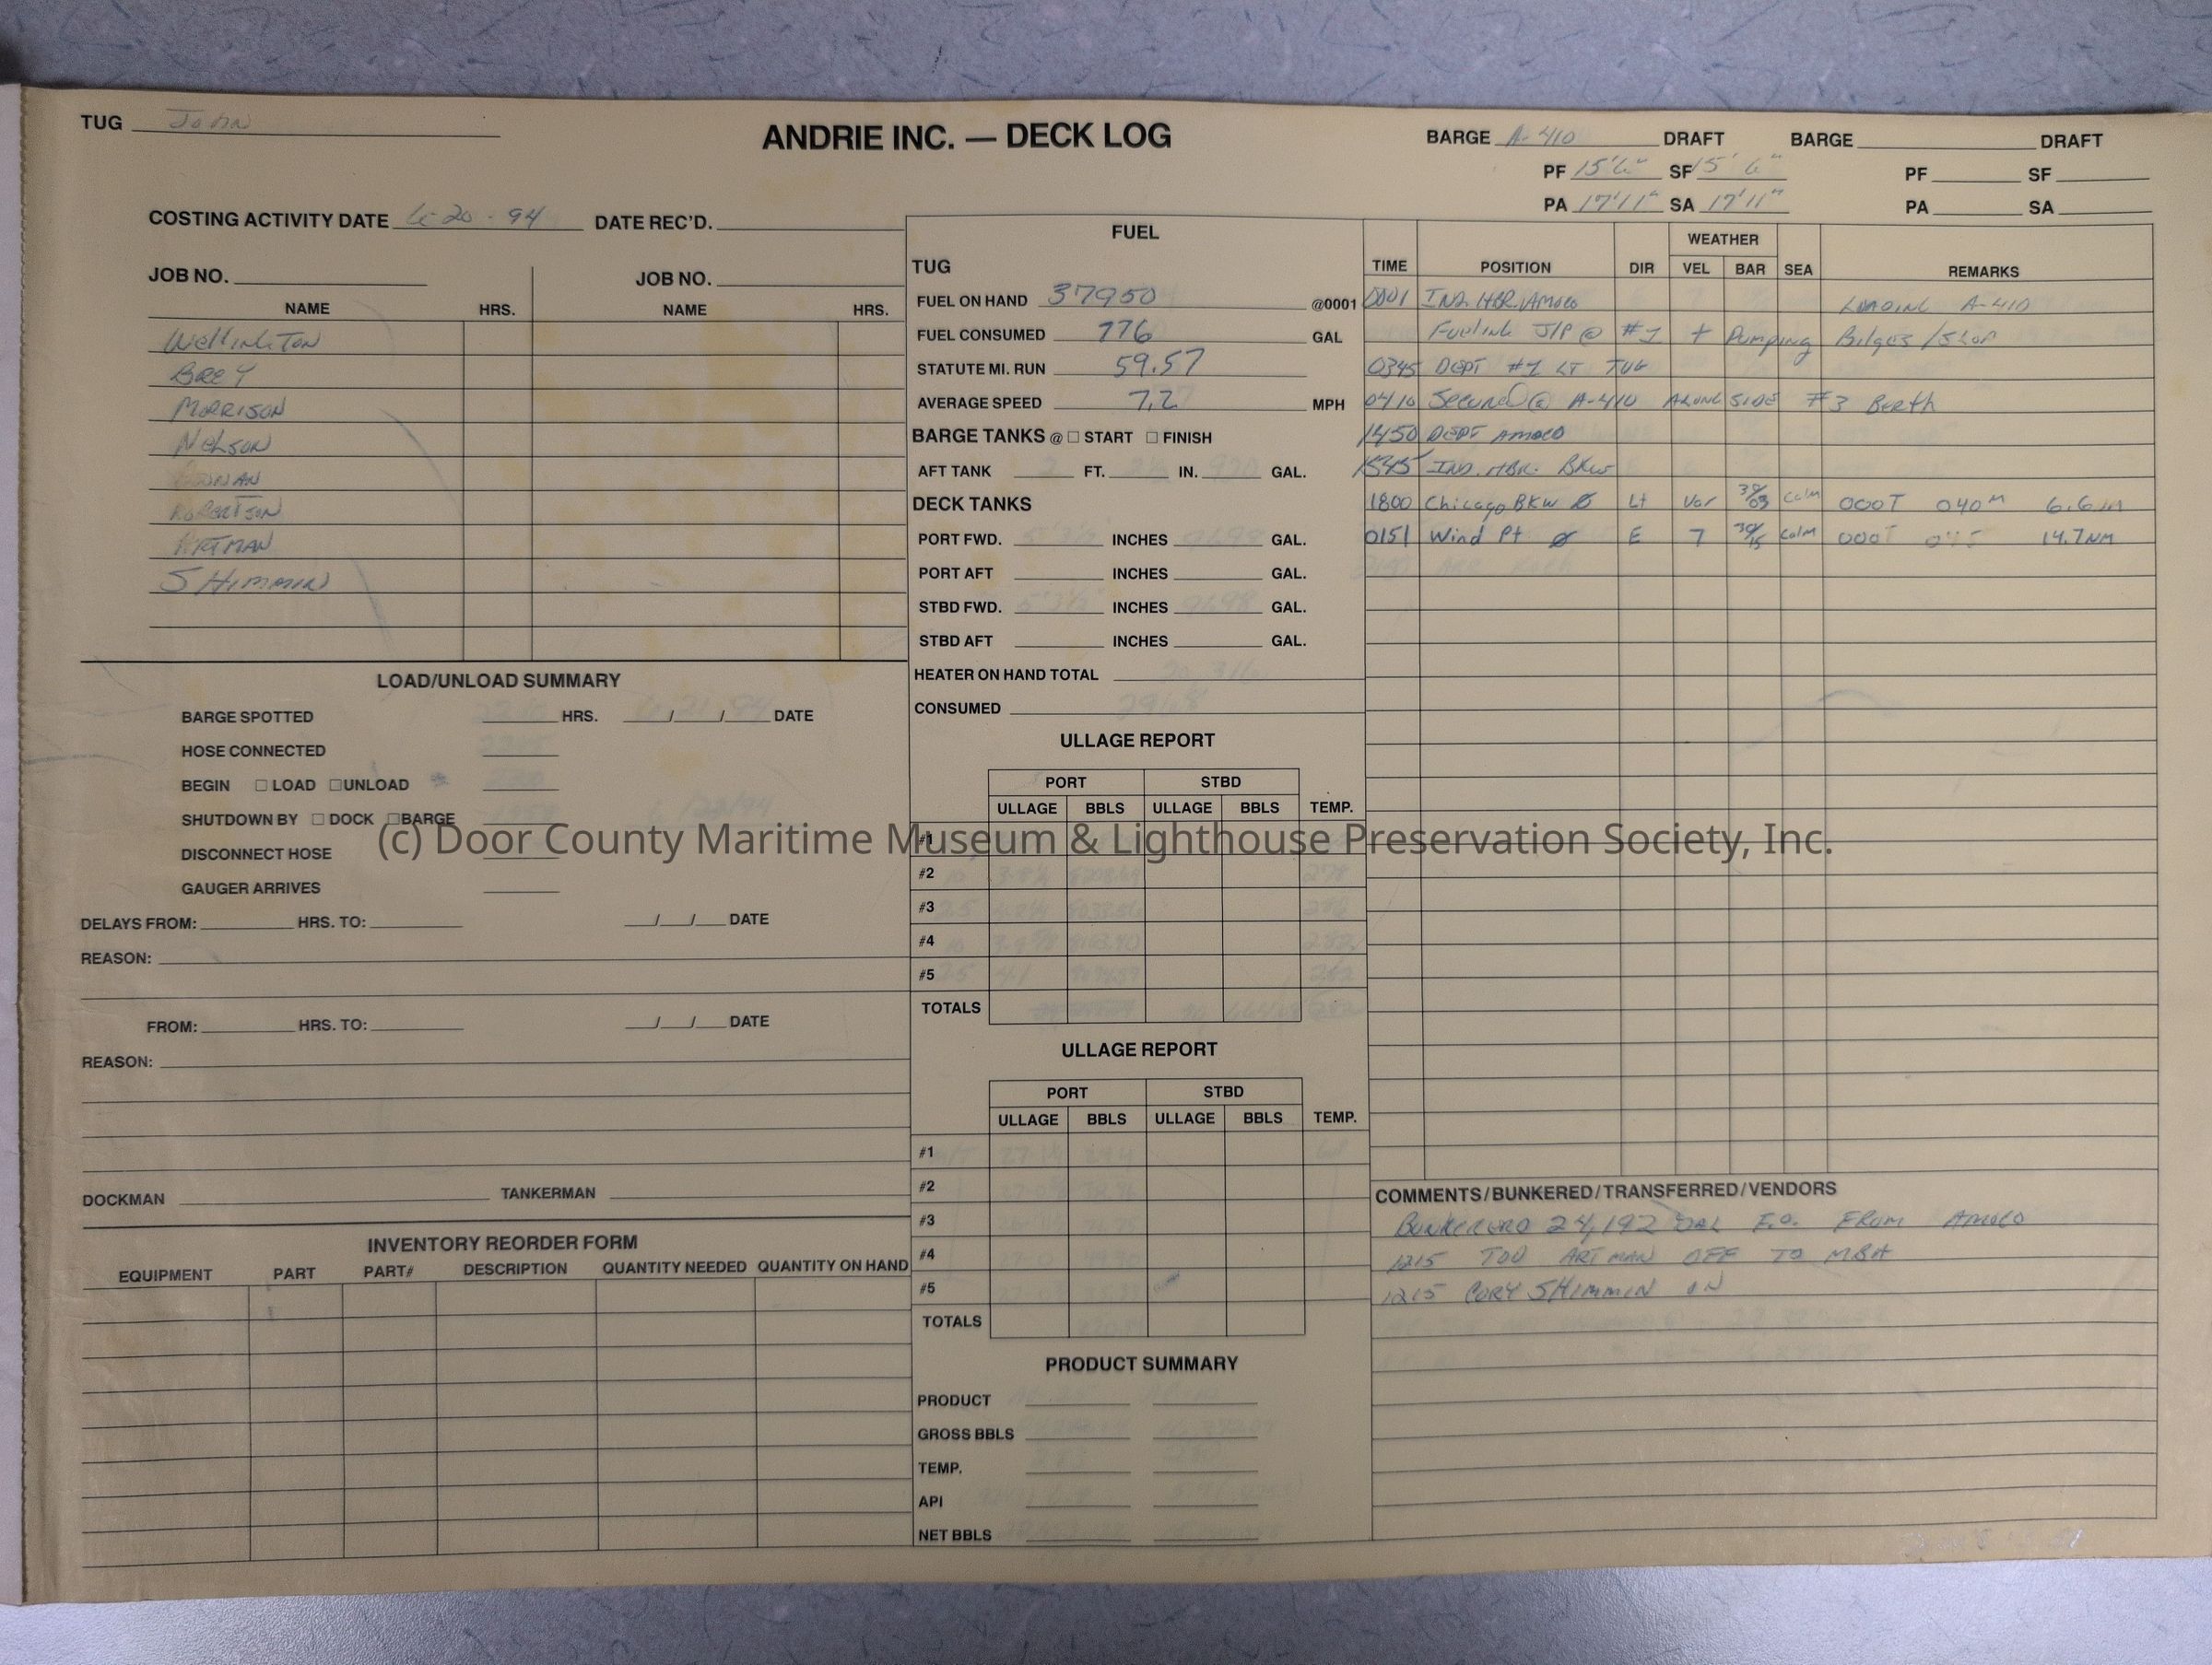 TUG John
ANDRIE INC. — DECK LOG
BARGE A-410 DRAFT BARGE DRAFT
PF 15'6" SF 15'6" PF SF
PA 17'11" SA 17'11" PA SA
COSTING ACTIVITY DATE 6-20-94 DATE REC'D.
JOB NO. JOB NO.
NAME HRS. NAME HRS.
Wellington
BREY
MORRISON
NELSON
ROBERTSON
ARTMAN
SHIMMIN
LOAD/UNLOAD SUMMARY
BARGE SPOTTED HRS. / / DATE
HOSE CONNECTED
BEGIN ☐ LOAD ☐ UNLOAD
SHUTDOWN BY ☐ DOCK ☐ BARGE
DISCONNECT HOSE
GAUGER ARRIVES
DELAYS FROM: HRS. TO: / / DATE
REASON:
FROM: HRS. TO: / / DATE
REASON:
DOCKMAN TANKERMAN
INVENTORY REORDER FORM
EQUIPMENT PART PART# DESCRIPTION QUANTITY NEEDED QUANTITY ON HAND
FUEL
TUG
FUEL ON HAND 37950 @0001
FUEL CONSUMED 776 GAL
STATUTE MI. RUN 59.57
AVERAGE SPEED 7.2 MPH
BARGE TANKS @ ☐ START ☐ FINISH
AFT TANK FT. IN. GAL.
DECK TANKS
PORT FWD. INCHES GAL.
PORT AFT INCHES GAL.
STBD FWD. INCHES GAL.
STBD AFT INCHES GAL.
HEATER ON HAND TOTAL
CONSUMED
ULLAGE REPORT
PORT STBD
ULLAGE BBLS ULLAGE BBLS TEMP.
#1
#2
#3
#4
#5
TOTALS
ULLAGE REPORT
PORT STBD
ULLAGE BBLS ULLAGE BBLS TEMP.
#1
#2
#3
#4
#5
TOTALS
PRODUCT SUMMARY
PRODUCT
GROSS BBLS
TEMP.
API
NET BBLS
WEATHER
TIME POSITION DIR VEL BAR SEA REMARKS
0001 IND. HBR. AMOCO LOADING A-410
Fueling J/P @ #1 + Pumping Bilges/Slop
0345 DEPT #1 LT TUG
0410 Secured @ A-410 ALONGSIDE #3 Berth
1450 DEPT AMOCO
1545 IND. HBR. BKW
1800 Chicago BKW Ø Lt Var 30/03 calm 000T 040M 6.6
0151 Wind Pt Ø E 7 30/15 calm 000T 14.7NM
COMMENTS/BUNKERED/TRANSFERRED/VENDORS
BUNKERED 24,192 GAL F.O. FROM AMOCO
1215 TOD ARTMAN OFF TO MBH
1215 CORY SHIMMIN ON
(c) Door County Maritime Museum & Lighthouse Preservation Society, Inc.